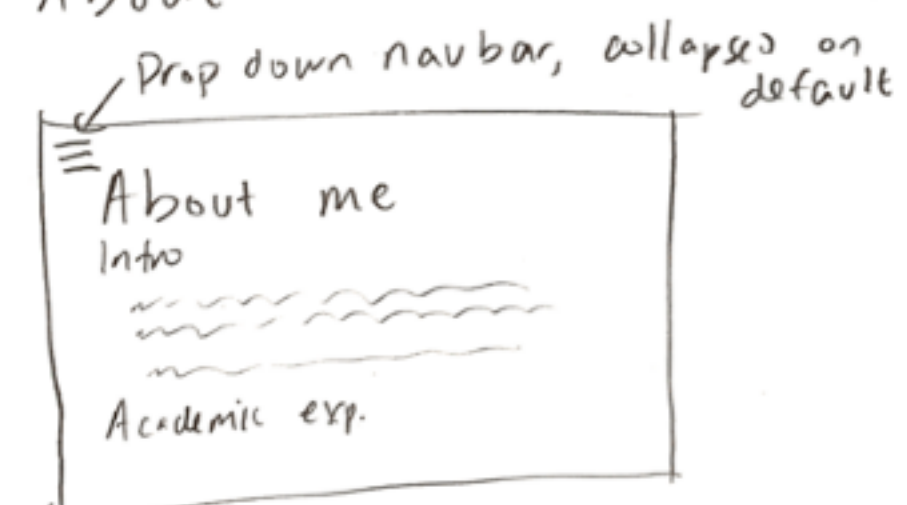 About
Drop down navbar, collapsed on
default
About me
Intro
Academic exp.